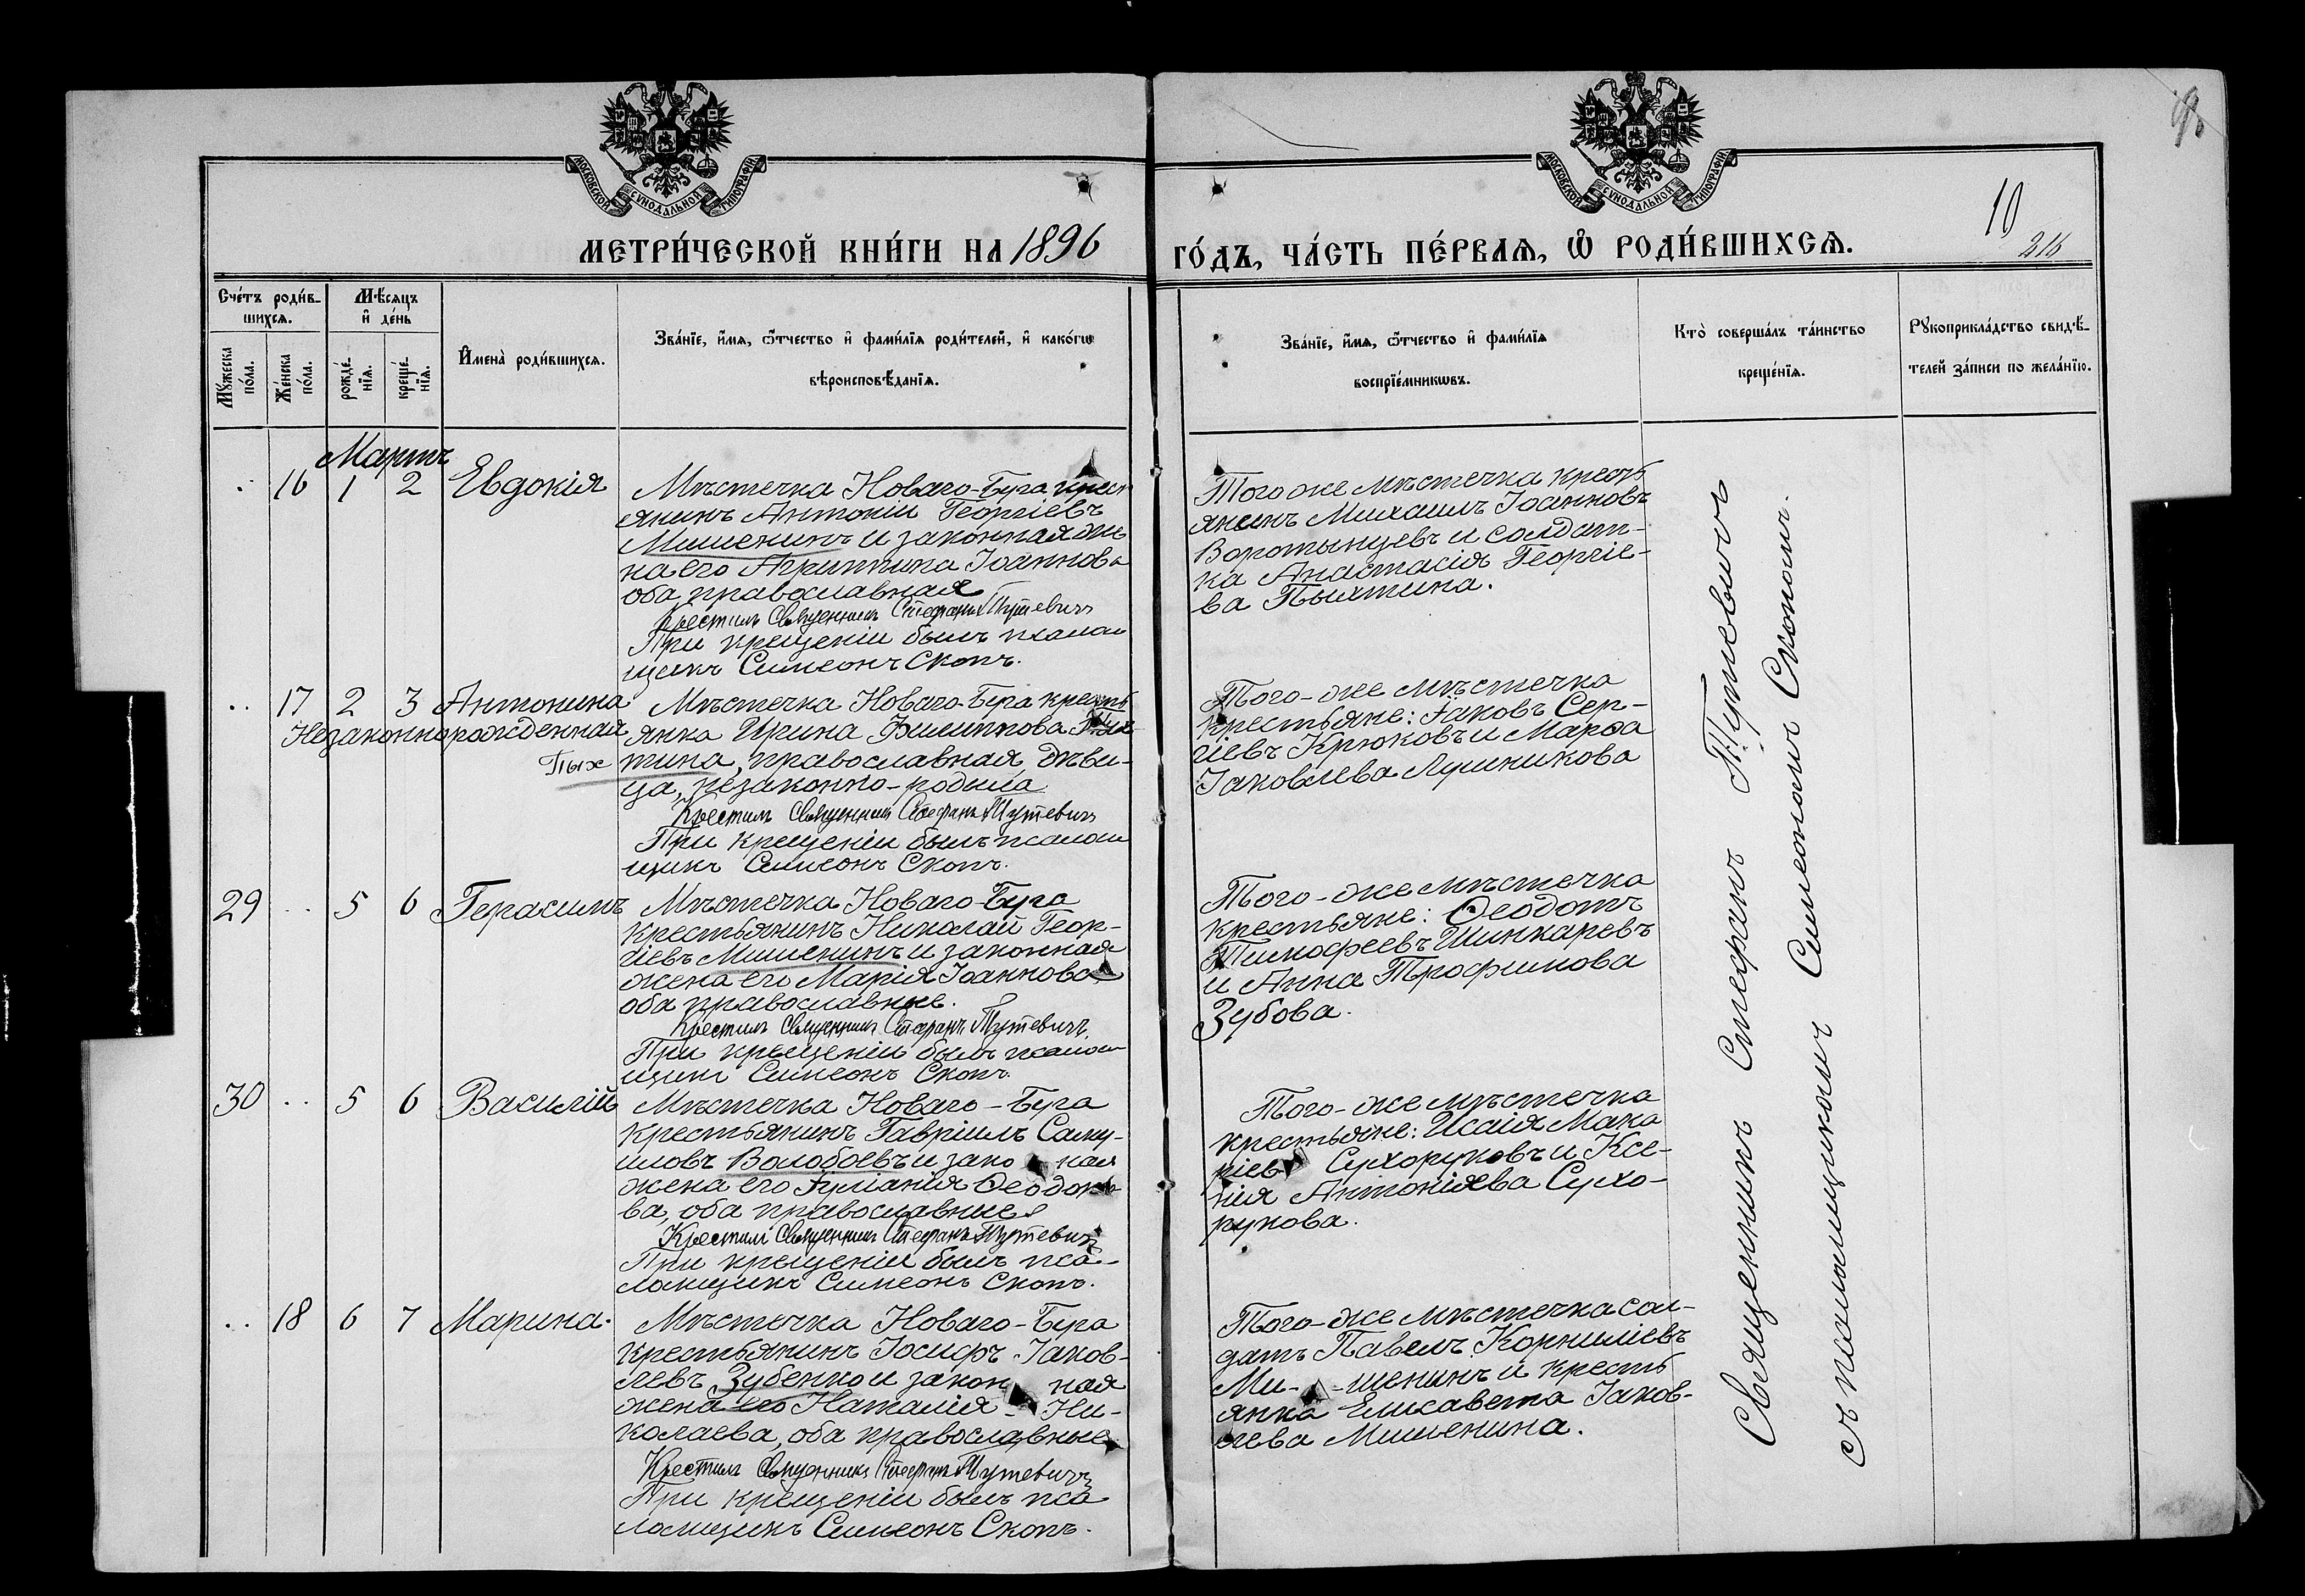 МОСКОВСКОЙ СѴНОДАЛЬНОЙ ТИПОГРАФІИ
МОСКОВСКОЙ СѴНОДАЛЬНОЙ ТИПОГРАФІИ
МЕТРИ́ЧЕСКОЙ КНИ́ГИ НА 1896
ГО́ДЪ, ЧА́СТЬ ПЕ́РВАѦ, Ѿ РОДИ́ВШИХСѦ.
10
Счéтъ роди́в-
шихсѧ.
Мѣ́сѧцъ
и҆ де́нь
Мꙋ́жеска
по́ла.
Же́нска
по́ла.
рожде́-
нїѧ.
креще́-
нїѧ.
И҆мена̀ роди́вшихсѧ.
Зва́нїе, и҆́мѧ, ѻ҆́тчество и҆ фами́лїѧ роди́телей, и҆ како́гѡ
вѣроисповѣ́данїѧ.
Зва́нїе, и҆́мѧ, ѻ҆́тчество и҆ фами́лїѧ
воспрїе́мникѡвъ.
Кто̀ соверша́лъ та́инство
креще́нїѧ.
Рꙋкоприкла́дство свидѣ́-
телей за́писи по жела́нїю.
Мартъ
16 1 2 Евдокія
Мѣстечка Новаго-Буга крест
янинъ Антоній Георгіевъ
Мишенинъ и законная же
на его Агриппина Іоаннова
оба православная
Крестилъ Священникъ Стефанъ Путевичъ
При крещеніи былъ псалом
щикъ Симеонъ Скопъ.
Того же мѣстечка кресть
янинъ Михаилъ Іоанновъ
Воротынцевъ и солдат-
ка Анастасія Георгіе-
ва Пыхтина.
17 2 3 Антонина
Незаконнорожденная
Пых
Мѣстечка Новаго-Буга кресть
янка Ирина Филиппова
тина, православная дѣви-
ца, незаконно-родила
Крестилъ Священникъ Стефанъ Путевичъ
При крещеніи былъ псалом
щикъ Симеонъ Скопъ.
Того-же мѣстечка
крестьяне: Іаковъ Сер-
гіевъ Крюковъ и Марѳа
Іаковлева Лушникова
29 5 6 Герасимъ
Мѣстечка Новаго-Буга
крестьянинъ Николай Геор-
гіевъ Мишенинъ и законная
жена его Марія Іоаннова
оба православные.
Крестилъ Священникъ Стефанъ Путевичъ
При крещеніи былъ псалом
щикъ Симеонъ Скопъ.
Того-же мѣстечка
крестьяне: Ѳеодотъ
Тимофеевъ Шинкаревъ
и Анна Трофимова
Зубова.
30 5 6 Василій
Мѣстечка Новаго-Буга
крестьянинъ Гавріилъ Саму-
иловъ Волобоевъ и зако ная
жена его Іуліанія Ѳеодо
ва, оба православные
Крестилъ Священникъ Стефанъ Путевичъ
При крещеніи былъ пса-
ломщикъ Симеонъ Скопъ.
Того-же мѣстечка
крестьяне: Исаія Мака
ріев Сухоруковъ и Ксе-
нія Антоніева Сухо-
рукова.
18 6 7 Марина.
Мѣстечка Новаго-Буга
крестьянинъ Іосифъ Іаков-
левъ Зубенко и закон ная
жена его Наталія Ни-
колаева, оба православные
Крестилъ Священникъ Стефанъ Путевичъ
При крещеніи былъ пса
ломщикъ Симеонъ Скопъ.
Того-же мѣстечка сол-
датъ Павелъ Корниліевъ
Ми- -шенинъ и кресть
янка Елисавета Іаков-
лева Мишенина.
Священникъ Стефанъ Путевичъ
съ псаломщикомъ Симеономъ Скопомъ.